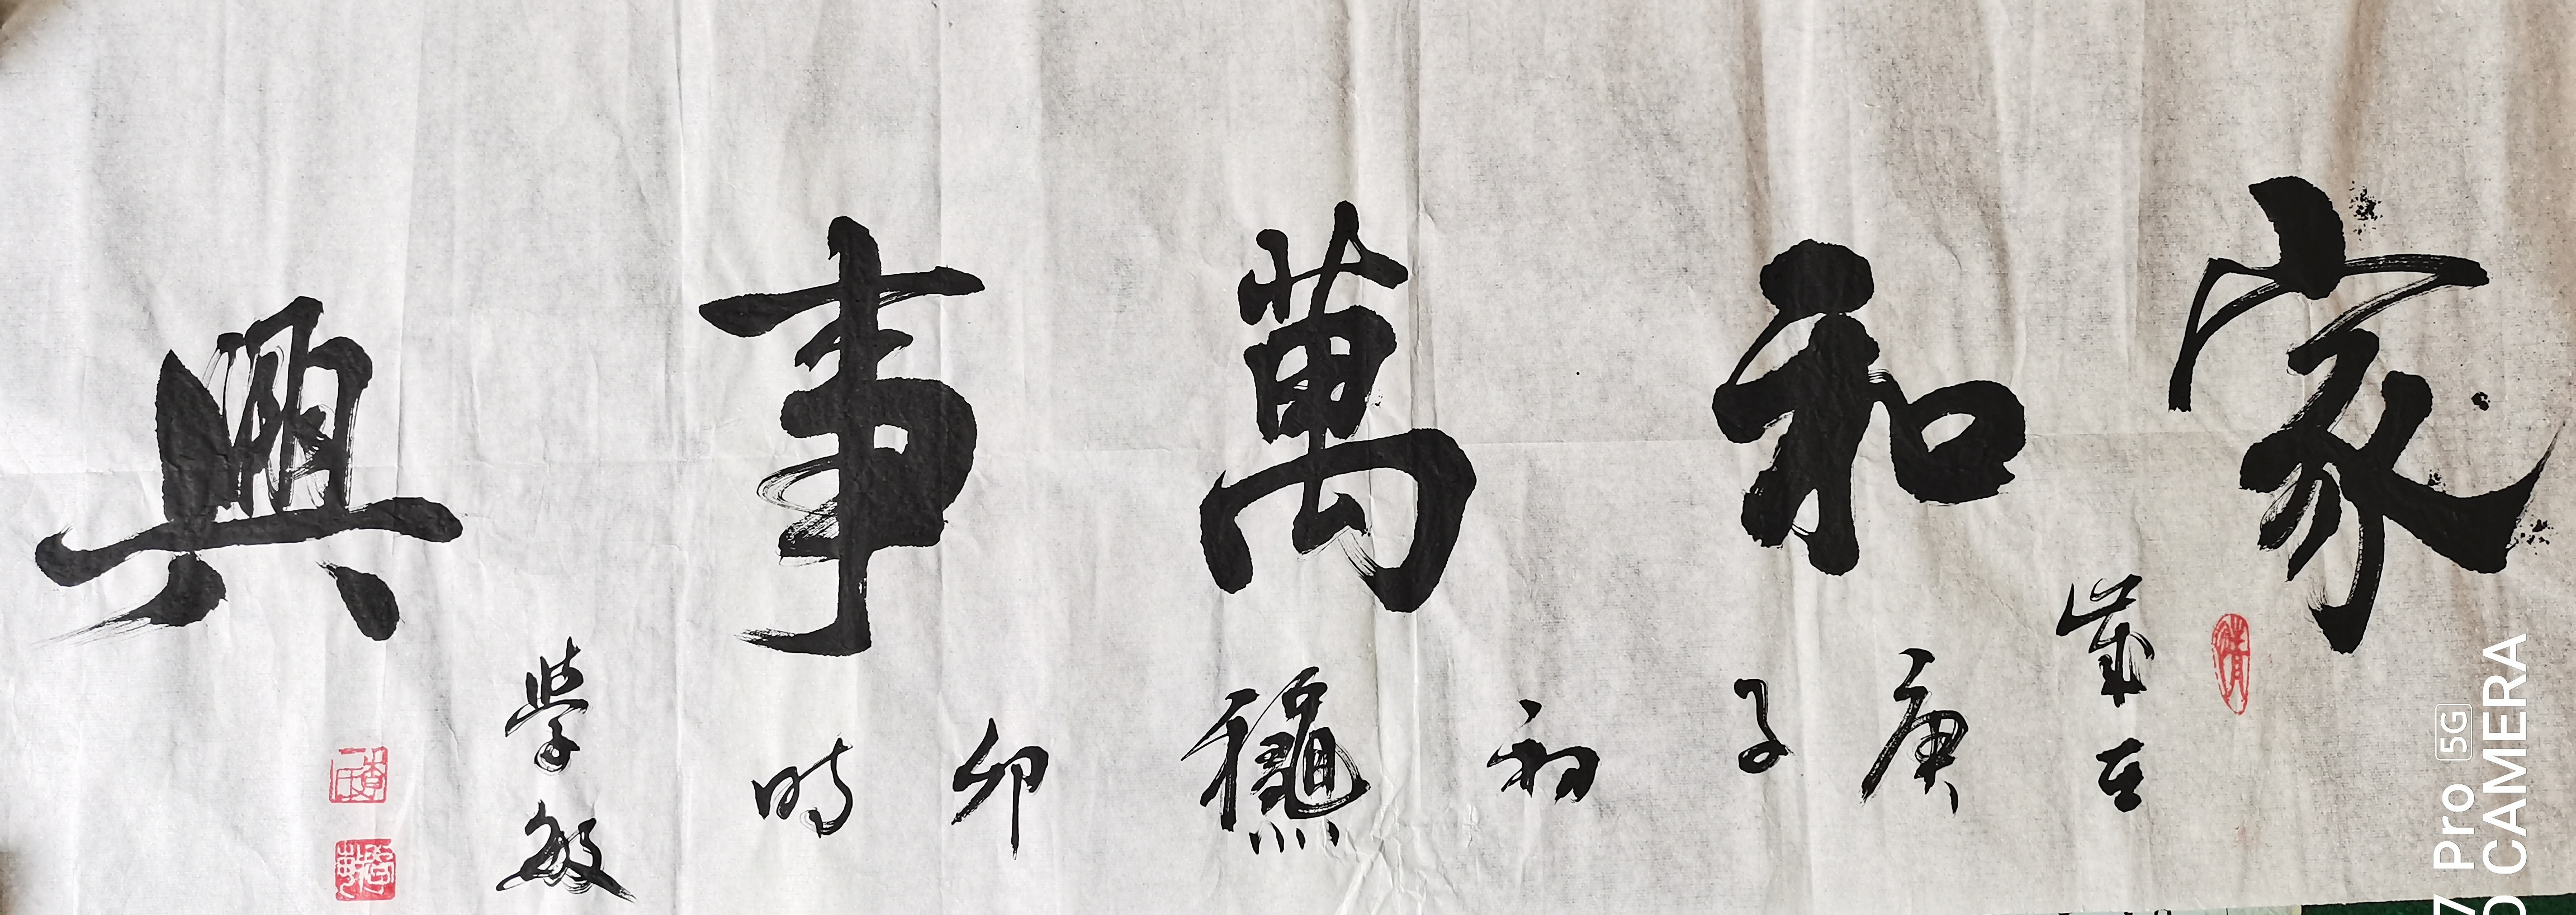 家和萬事興
歲在庚子初龝卯時
學敏
7 Pro 5G
D CAMERA